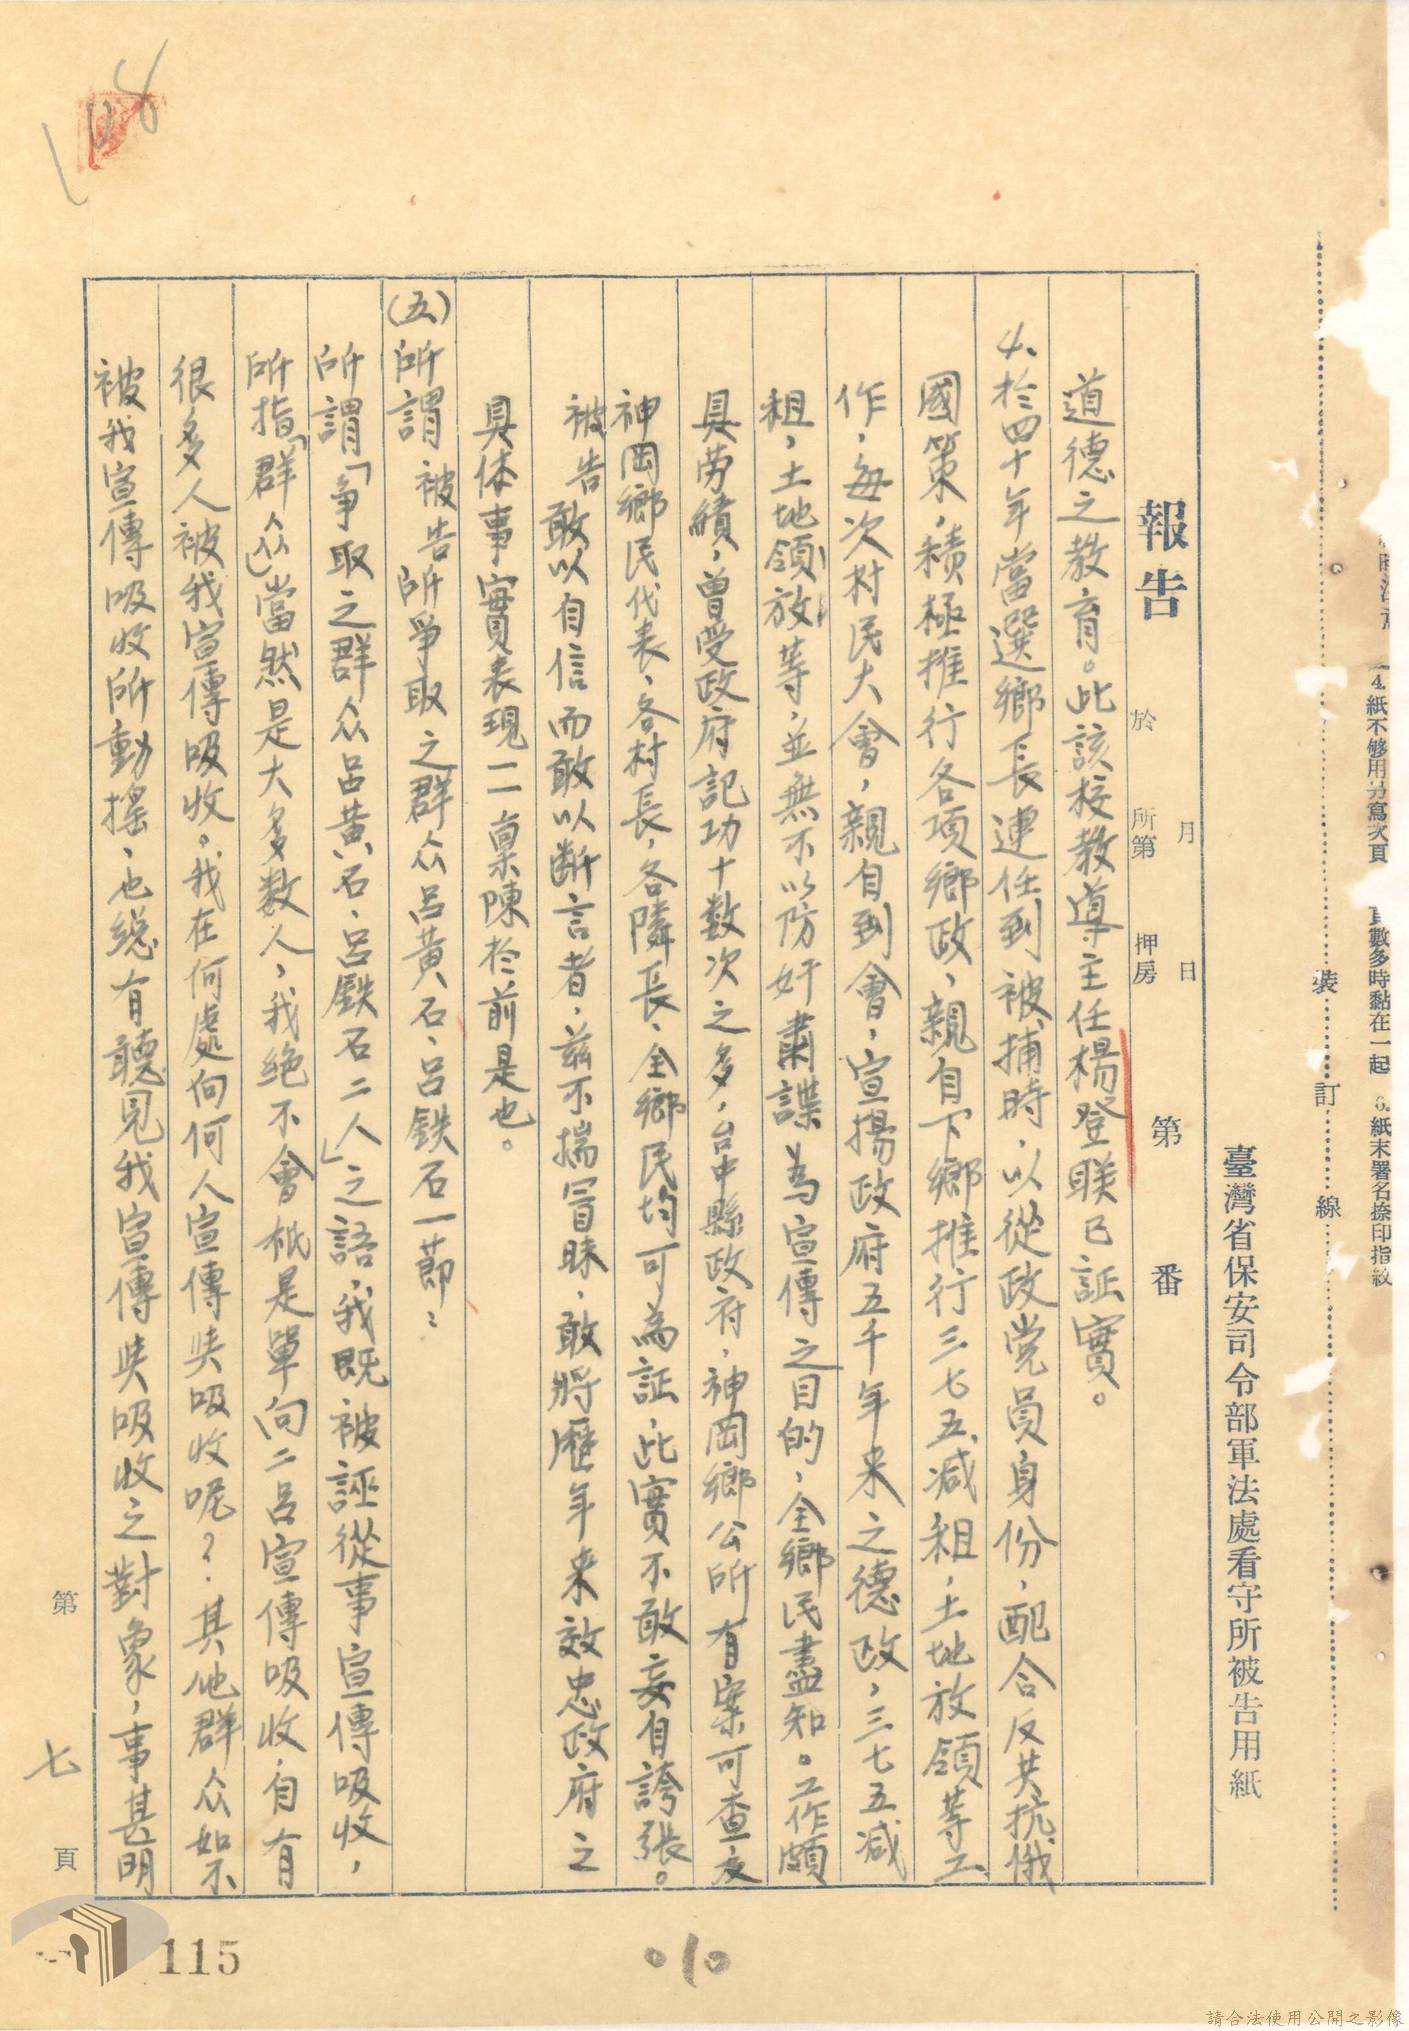 4.紙不够用另寫次頁
頁數多時黏在一起
紙末署名捺印指紋
裝訂線
臺灣省保安司令部軍法處看守所被告用紙
報告
月 日
於 所第 押房
第 番
道德之教育。此該校教導主任楊登联已証實。
4、於四十年當選鄉長連任到被捕時，以從政党員身份，配合反共抗俄
國策，積極推行各項鄉政，親自下鄉推行三七五减租，土地放領等工
作，每次村民大會，親自到會，宣揚政府五千年来之德政，三七五减
租，土地領放等，並無不以防奸肅諜為宣傳之目的，全鄉民盡知。工作頗
具劳績，曾受政府記功十数次之多，台中縣政府，神岡鄉公所有案可查，及
神岡鄉民代表、各村長，各隣長、全鄉民均可為証，此實不敢妄自誇張。
被告敢以自信而敢以断言者，兹不揣冒昧，敢將歷年来效忠政府之
具体事實表現一一稟陳於前是也。
(五)所謂被告所爭取之群众呂黄石、呂鉄石一節：
所謂「争取之群众呂黄石、呂鉄石二人」之語，我既被誣從事宣傳吸收，
所指「群众」當然是大多数人，我绝不會祇是單向二呂宣傳吸收，自有
很多人被我宣傳吸收。我在何處向何人宣傳與吸收呢？其他群众如不
被我宣傳吸收所動搖、也總有聽見我宣傳與吸收之對象，事甚明
第 七 頁
108
115
010
請合法使用公開之影像